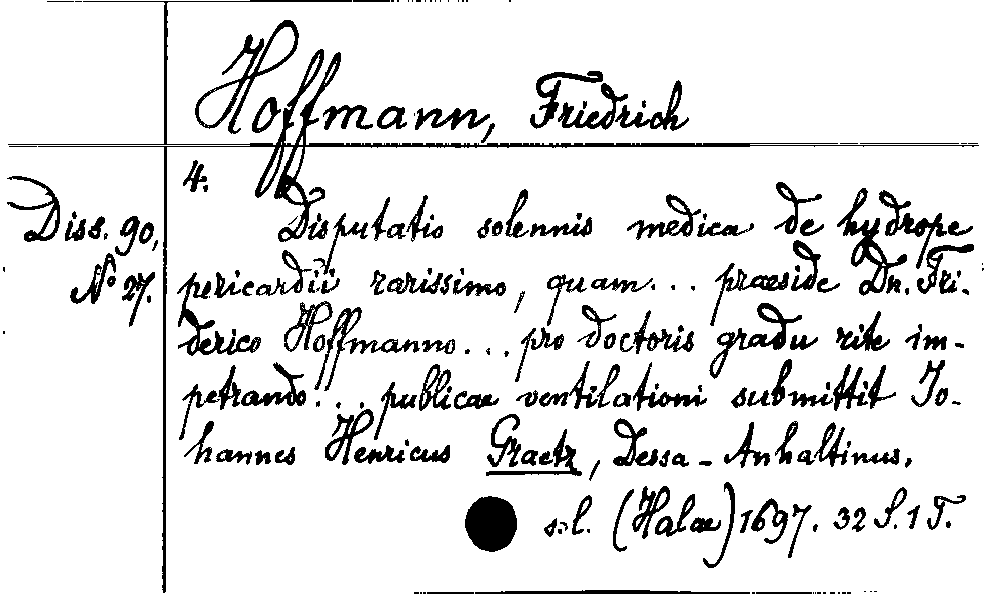 Hoffmann, Friedrich
4.
Diss. 90,
No 27.
Disputatio solennis medica de hydrope
pericardii rarissimo, quam... praeside Dn. Fri-
derico Hoffmanno... pro doctoris gradu rite im-
petrando... publicae ventilationi submittit Jo-
hannes Henricus Graetz, Dessa-Anhaltinus.
s.l. (Halae) 1697. 32 S. 1 T.